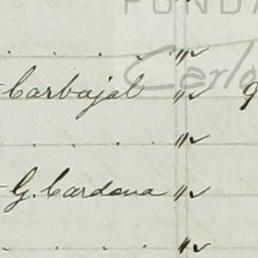 FUNDA
. . . . . "
Carlo
Carbajal "
. . . . . "
G. Cardona "
. . . . . "